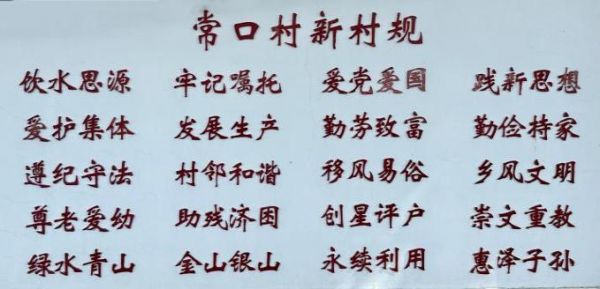 常口村新村规
饮水思源 牢记嘱托 爱党爱国 践新思想
爱护集体 发展生产 勤劳致富 勤俭持家
遵纪守法 村邻和谐 移风易俗 乡风文明
尊老爱幼 助残济困 创星评户 崇文重教
绿水青山 金山银山 永续利用 惠泽子孙